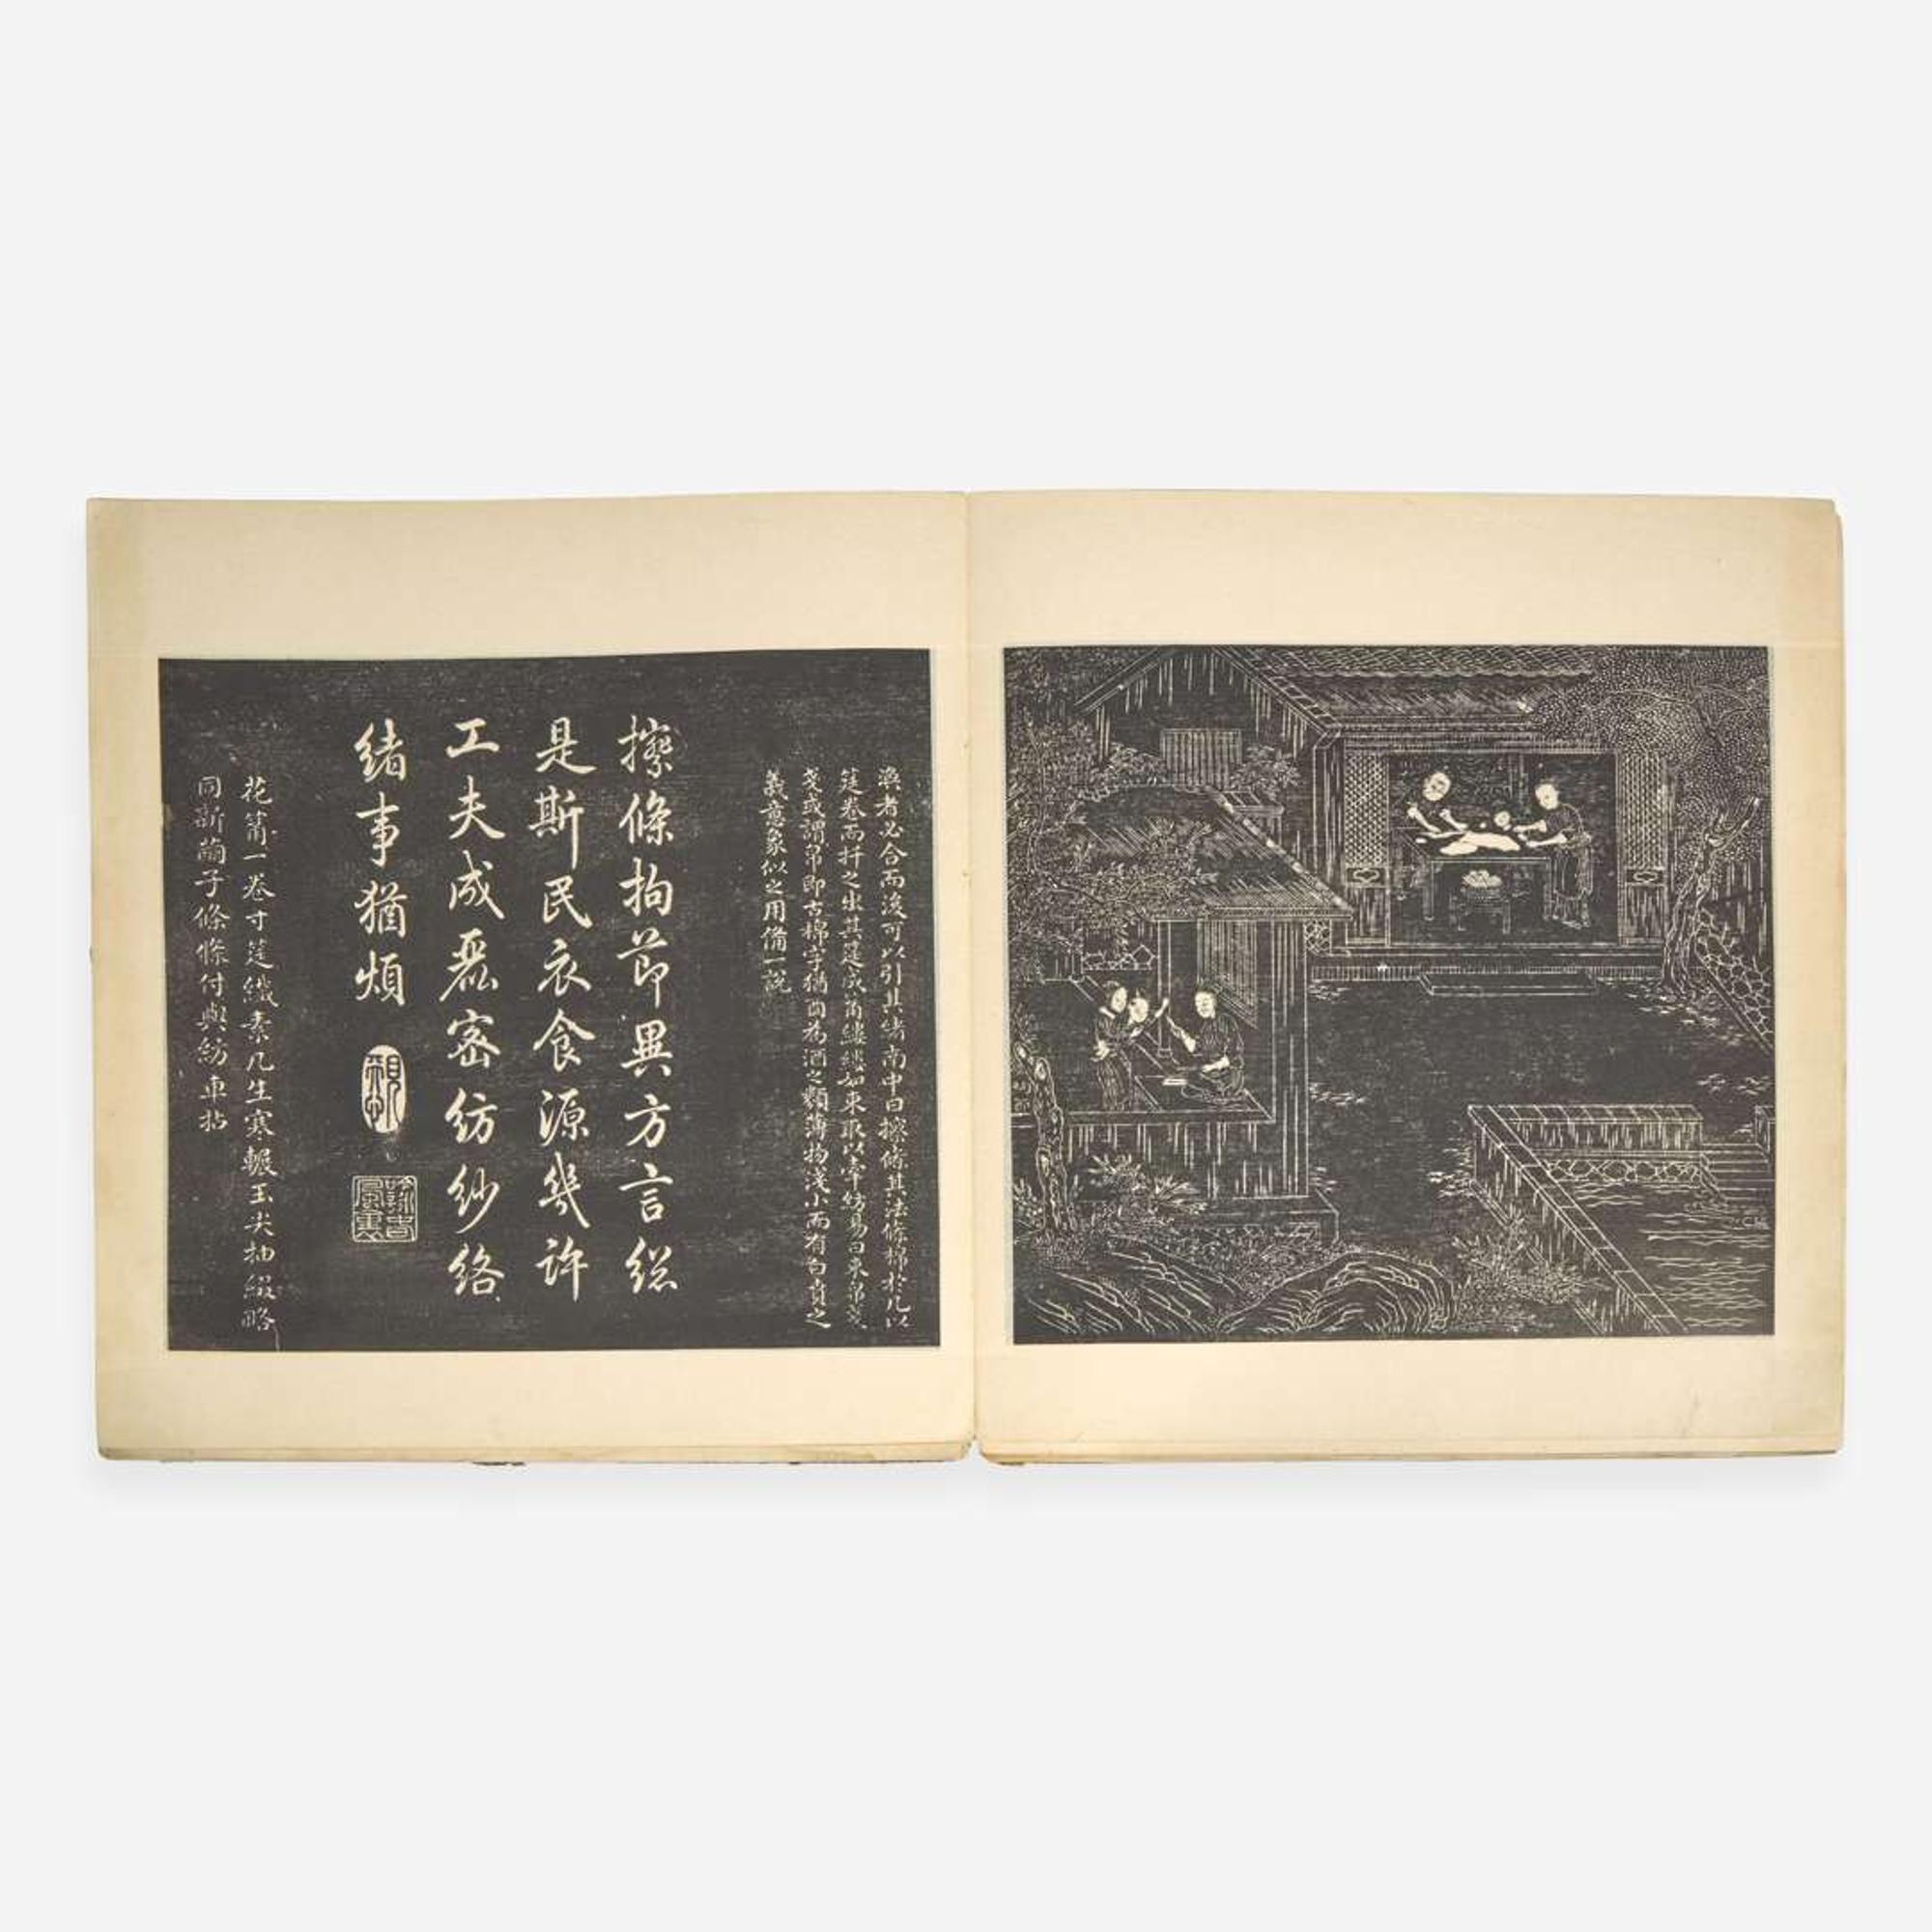 渙者必合而後可以引其緒南中曰擦條其法條棉於几以
筳卷而扞之出其筳成筩縷縷如束取以牽紡易曰束帛戔
戔或謂帛即古棉字猶卣為酒之類薄物淺小而有白賁之
義意象似之用備一說
擦條拘節異方言緫
是斯民衣食源幾許
工夫成麗密紡紗絡
緒事猶煩
花筩一卷寸筳纖素几生寒輾玉尖抽綴略
同新繭子條條付與紡車拈